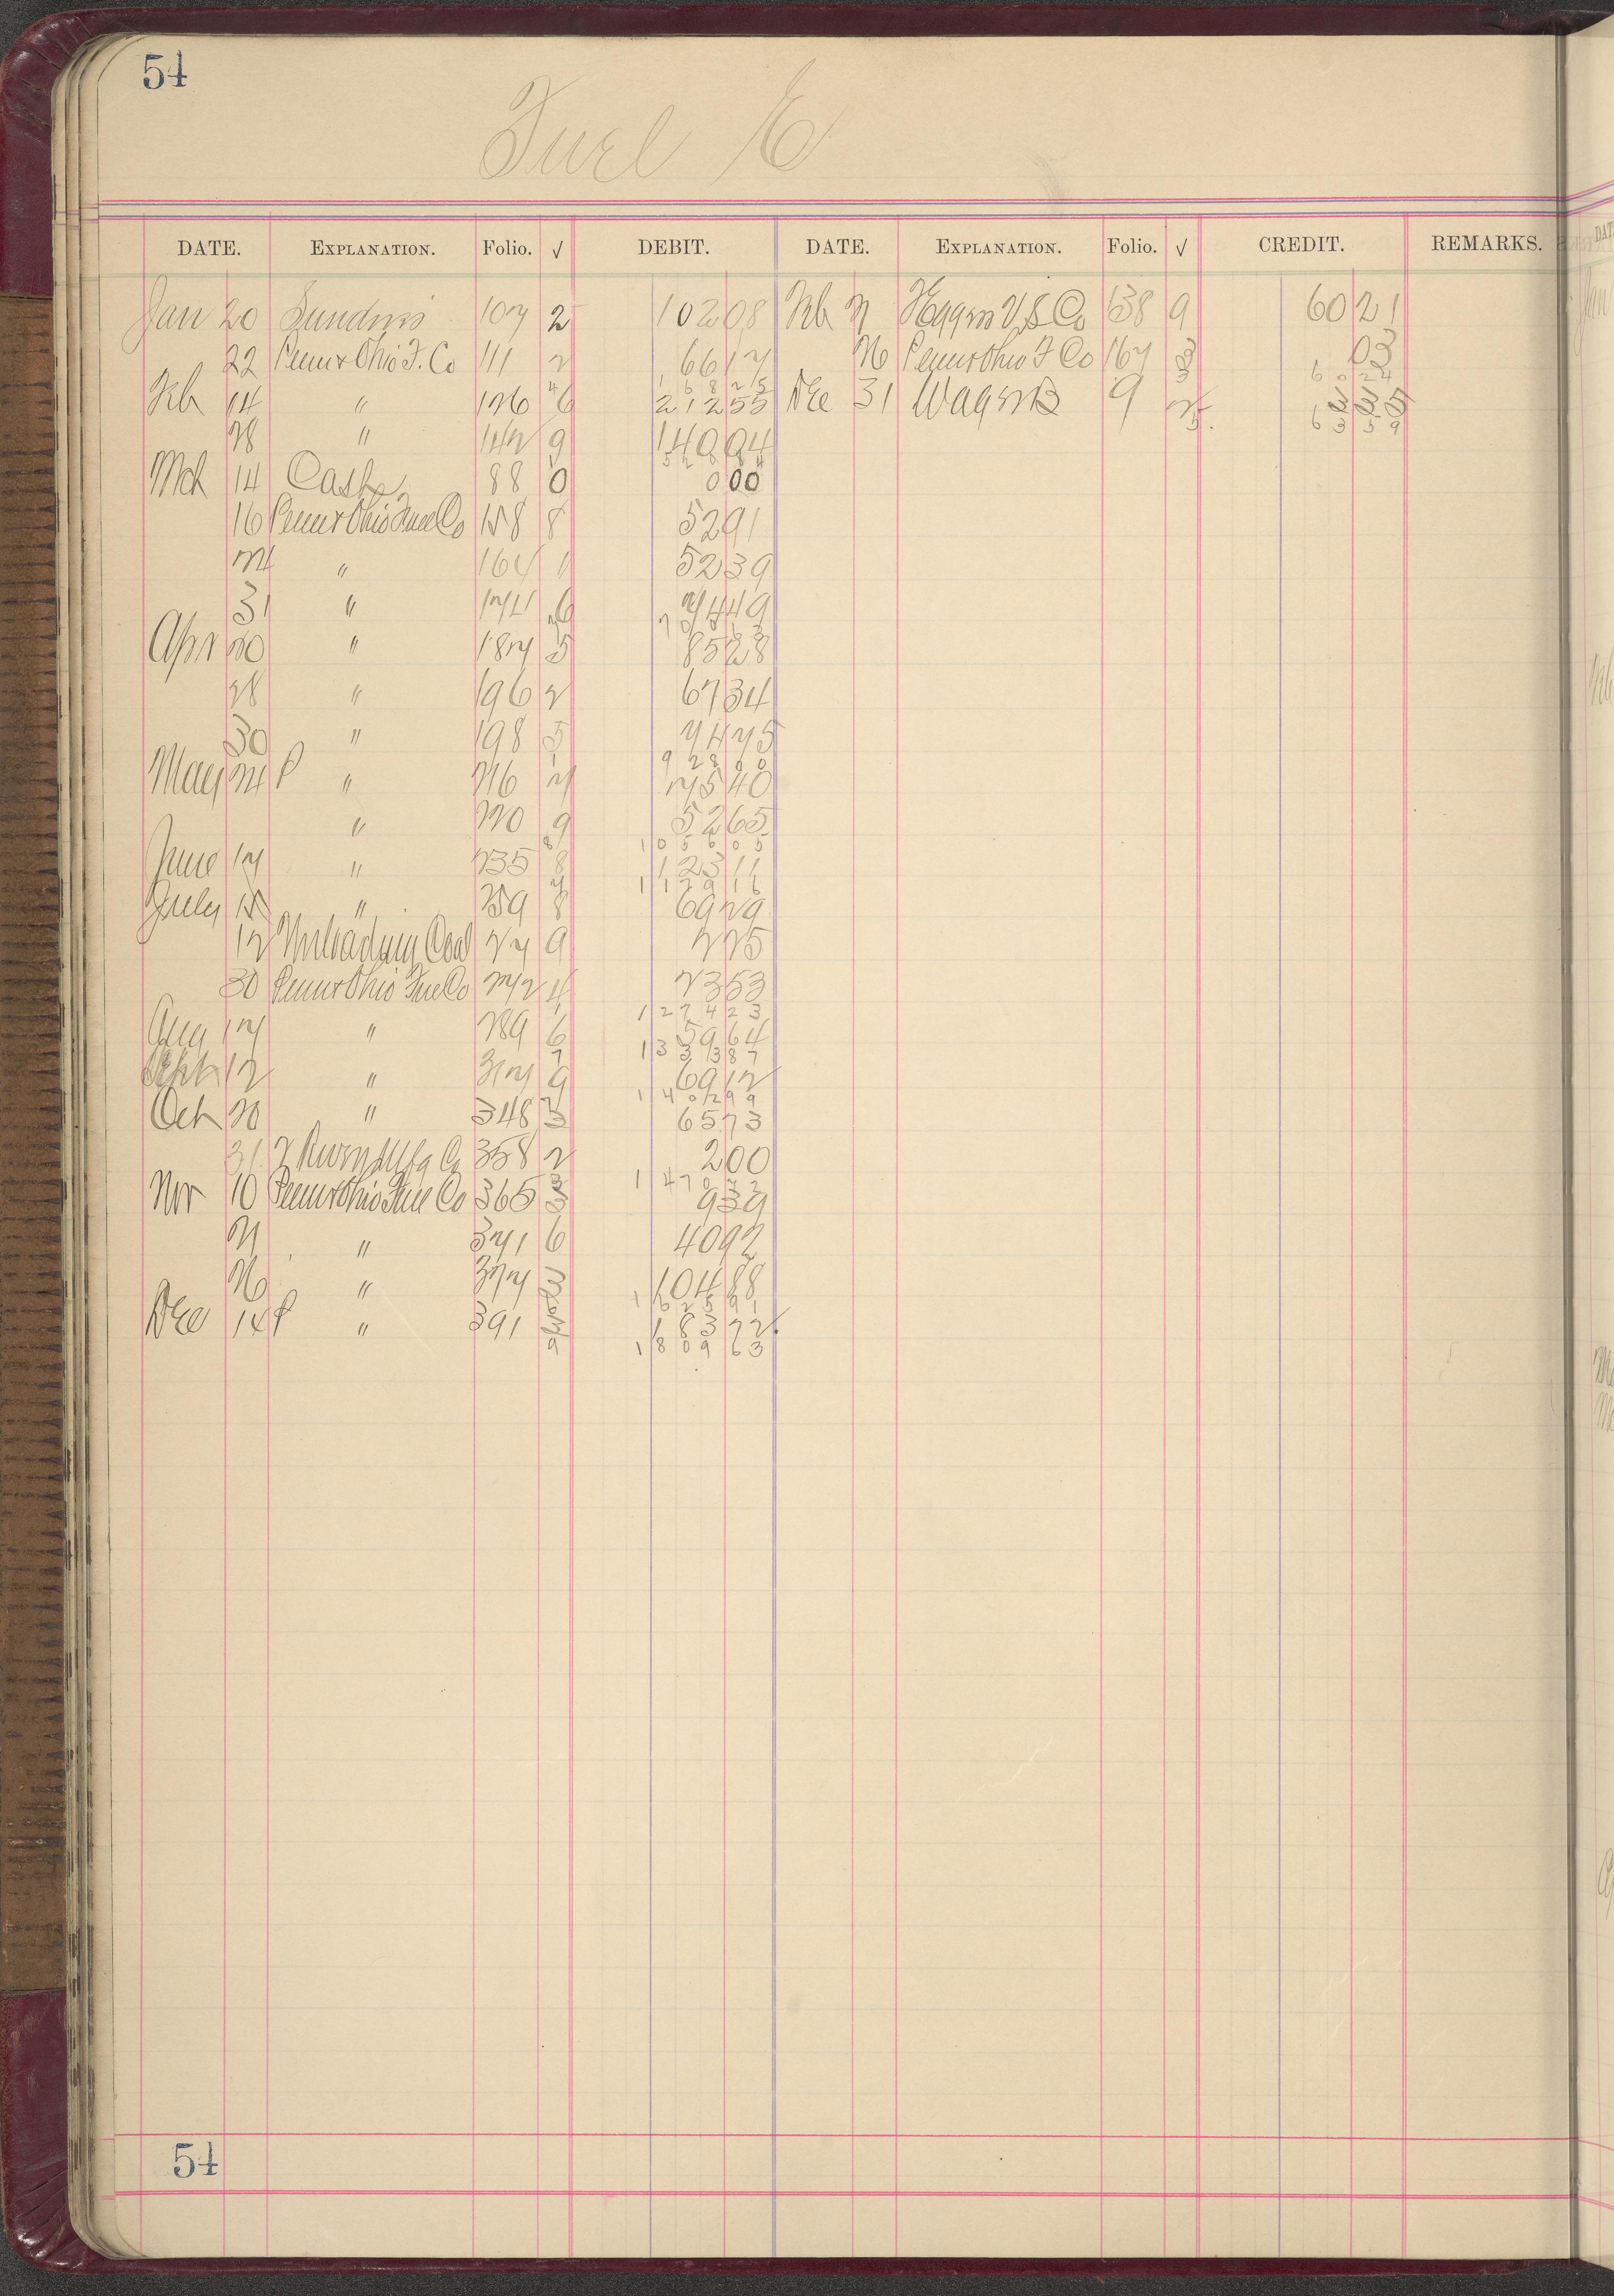 54
Fuel E
DATE. EXPLANATION. Folio. √ DEBIT. DATE. EXPLANATION. Folio. √ CREDIT. REMARKS.
Jan 20 Sundries 107 2 102 08 Feb 7 138 9 60 21
22 Penn & Ohio F. Co 111 2 66 17 26 Penn & Ohio F Co 167 3 03
1 6 8 2 5 6 0 2 4
Feb 14 " 126 6 212 55 Dec 31 Wagner B 9 2 3 35
6 3 5 9
28 " 142 9 140 04
5 2 0 8 4
Mch 14 Cash 88 0 0 00
16 Penn & Ohio Fuel Co 158 8 52 91
24 " 164 1 52 39
31 " 174 6 74 49
Apr 20 " 187 5 85 28
28 " 196 2 67 34
30 " 198 5 74 75
9 2 8 0 0
May 24 P " 216 7 75 40
" 220 9 52 65
1 0 5 6 0 5
June 17 " 235 8 123 11
1 1 7 9 1 6
July 15 " 259 8 69 29
12 Unloading Coal 27 9 2 25
30 Penn & Ohio Fuel Co 272 4 23 53
1 2 7 4 2 3
Aug 17 " 289 6 59 64
1 3 3 3 8 7
Sept 12 " 317 9 69 12
1 4 0 2 9 9
Oct 20 " 348 3 65 73
31 358 2 2 00
1 4 7 0 7 2
Nov 10 Penn & Ohio Fuel Co 365 3 9 39
21 " 371 6 40 92
26 " 377 3 104 88
1 6 2 5 9 1
Dec 14 P " 391 183 72
1 8 0 9 6 3
54